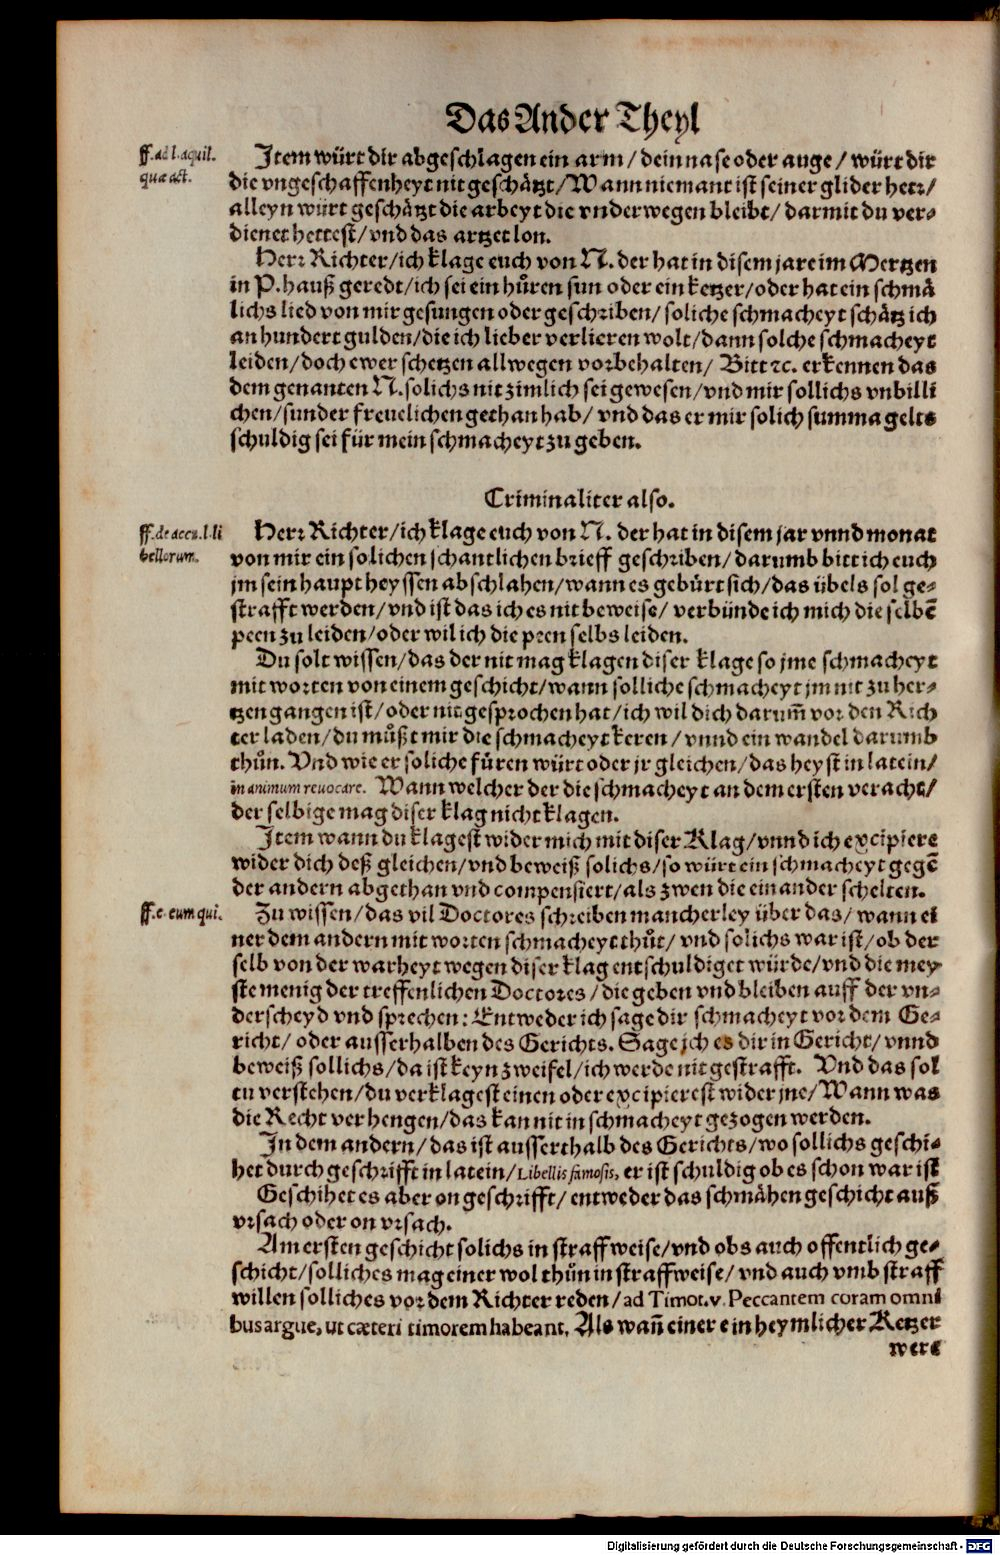 Das Ander Theyl
ff. ad l. aquil.
quæ act.
Item würt dir abgeschlagen ein arm / dein nase oder auge / würt dir
die vngeschaffenheyt nit geschätzt / Wann niemant ist seiner glider herr /
alleyn würt geschätzt die arbeyt die vnderwegen bleibt / darmit du ver-
dienet hettest / vnd das artzet lon.
Herr Richter / ich klage euch von N. der hat in disem jare im Mertzen
in P. hauß geredt / ich sei ein hůren sun oder ein ketzer / oder hat ein schmä
lichs lied von mir gesungen oder geschriben / soliche schmacheyt schätz ich
an hundert gulden / die ich lieber verlieren wolt / dann solche schmacheyt
leiden / doch ewer schetzen allwegen vorbehalten / Bitt ꝛc. erkennen das
dem genanten N. solichs nit zimlich sei gewesen / vnd mir sollichs vnbilli
chen / sunder freuelichen gethan hab / vnd das er mir solich summa gelts
schuldig sei für mein schmacheyt zu geben.
Criminaliter also.
ff. de accu. l. li
bellorum.
Herr Richter / ich klage euch von N. der hat in disem jar vnnd monat
von mir ein solichen schantlichen brieff geschriben / darumb bitt ich euch
jm sein haupt heyssen abschlahen / wann es gebürt sich / das übels sol ge-
strafft werden / vnd ist das ich es nit beweise / verbünde ich mich die selbē
peen zu leiden / oder wil ich die peen selbs leiden.
Du solt wissen / das der nit mag klagen diser klage so jme schmacheyt
mit worten von einem geschicht / wann solliche schmacheyt jm nit zu her-
tzen gangen ist / oder nit gesprochen hat / ich wil dich darum̄ vor den Rich
ter laden / du můßt mir die schmacheyt keren / vnnd ein wandel darumb
thůn. Vnd wie er soliche füren würt oder jr gleichen / das heyst in latein /
in animum reuocare. Wann welcher der die schmacheyt an dem ersten veracht /
der selbige mag diser klag nicht klagen.
Item wann du klagest wider mich mit diser Klag / vnnd ich excipiere
wider dich deß gleichen / vnd beweiß solichs / so würt ein schmacheyt gegē
der andern abgethan vnd compensiert / als zwen die einander schelten.
ff. e. eum qui.
Zu wissen / das vil Doctores schreiben mancherley über das / wann ei
ner dem andern mit worten schmacheyt thůt / vnd solichs war ist / ob der
selb von der warheyt wegen diser klag entschuldiget würde / vnd die mey
ste menig der treffenlichen Doctores / die geben vnd bleiben auff der vn-
derscheyd vnd sprechen: Entweder ich sage dir schmacheyt vor dem Ge-
richt / oder ausserhalben des Gerichts. Sage ich es dir in Gericht / vnnd
beweiß sollichs / da ist keyn zweifel / ich werde nit gestrafft. Vnd das sol
tu verstehen / du verklagest einen oder excipierest wider jne / Wann was
die Recht verhengen / das kan nit in schmacheyt gezogen werden.
In dem andern / das ist ausserthalb des Gerichts / wo sollichs geschi-
het durch geschrifft in latein / Libellis famosis, er ist schuldig ob es schon war ist
Geschihet es aber on geschrifft / entweder das schmähen geschicht auß
vrsach oder on vrsach.
Am ersten geschicht solichs in straffweise / vnd obs auch offentlich ge-
schicht / solliches mag einer wol thůn in straffweise / vnd auch vmb straff
willen solliches vor dem Richter reden / ad Timot. v. Peccantem coram omni
bus argue, ut cæteri timorem habeant. Als wañ einer ein heymlicher Ketzer
were
Digitalisierung gefördert durch die Deutsche Forschungsgemeinschaft - DFG